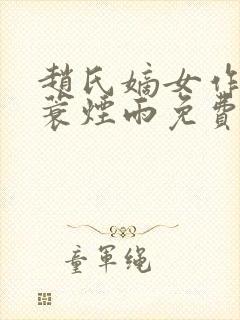 趙氏嫡女作
蓑煙雨免費
童軍绳